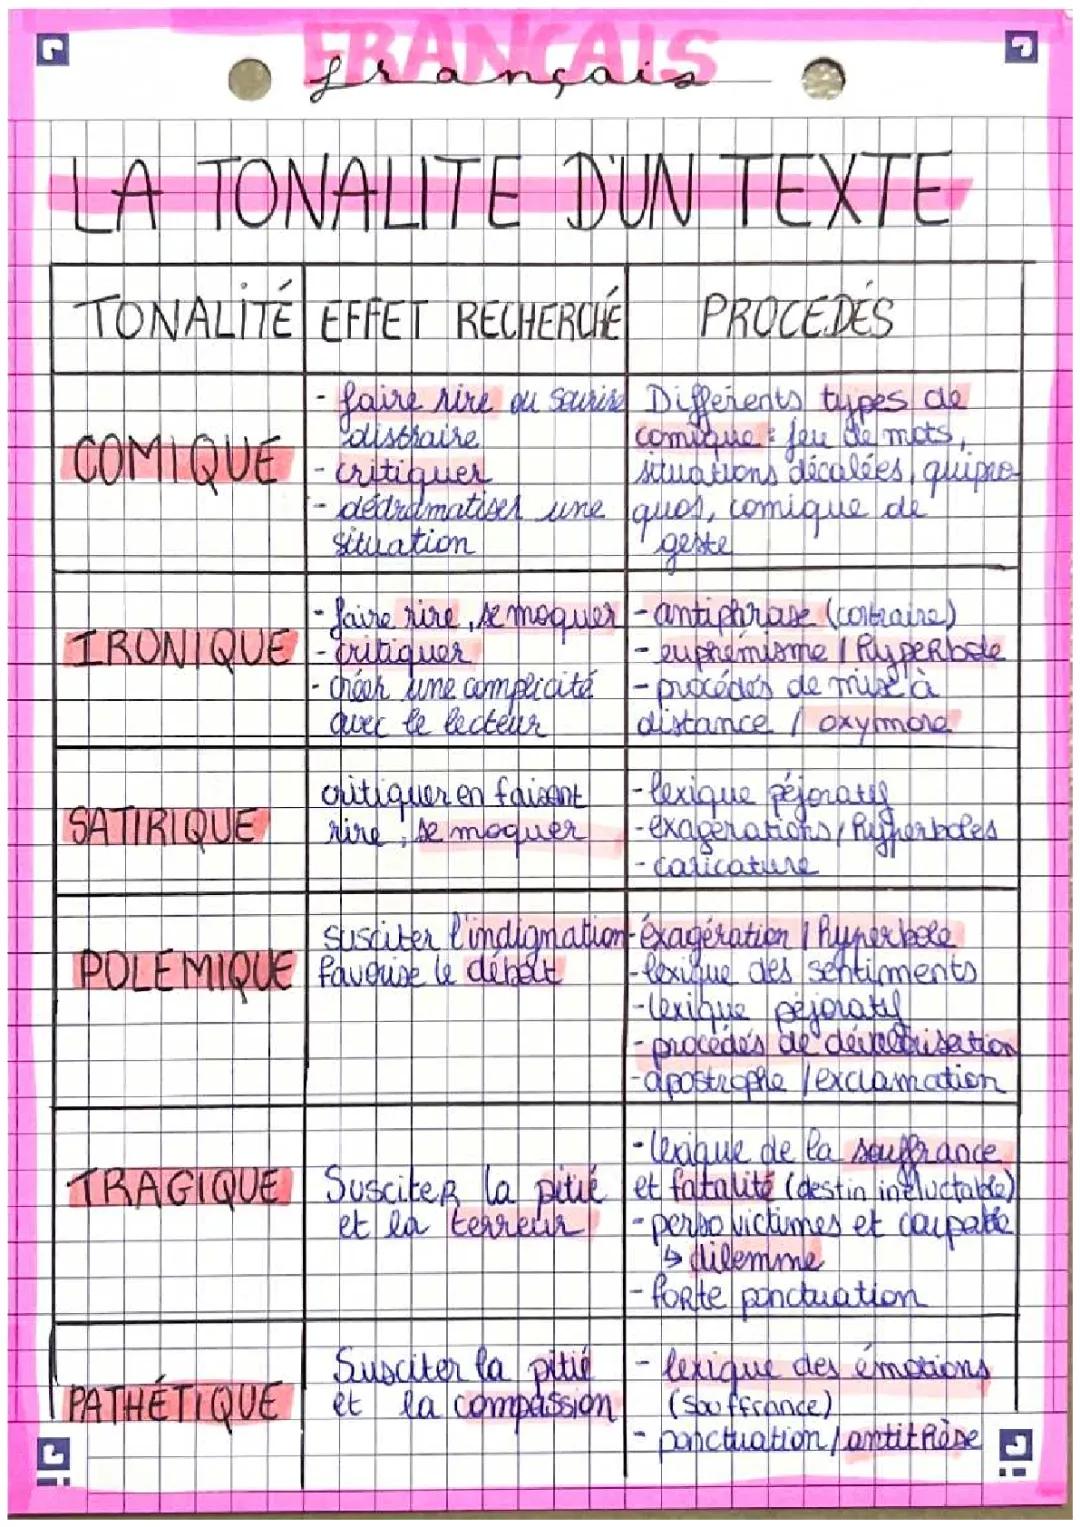 FRANÇAIS
français
LA TONALITE D'UN TEXTE
TONALITÉ
EFFET RECHERCHÉ
PROCEDÉS
COMIQUE
- faire rire ou sourire
distraire
- critiquer
- dédramatiser une
situation
Différents types de
comique : jeu de mots,
situations décalées, quipro-
quos, comique de
geste
IRONIQUE
- faire rire, se moquer
- critiquer
- créer une complicité
avec le lecteur
- antiphrase (contraire)
- euphémisme / hyperbole
- procédés de mise à
distance / oxymore
SATIRIQUE
critiquer en faisant
rire, se moquer
- lexique péjoratif
- exagérations / hyperboles
- caricature
POLEMIQUE
susciter l'indignation
favorise le débat
- éxagération / hyperbole
- lexique des sentiments
- lexique péjoratif
- procédés de dévalorisation
- apostrophe / exclamation
TRAGIQUE
Susciter la pitié
et la terreur
- lexique de la souffrance
et fatalité (destin inéluctable)
- perso victimes et coupable
↳ dilemme
- forte ponctuation
PATHÉTIQUE
Susciter la pitié
et la compassion
- lexique des émotions
(souffrance)
- ponctuation / antithèse